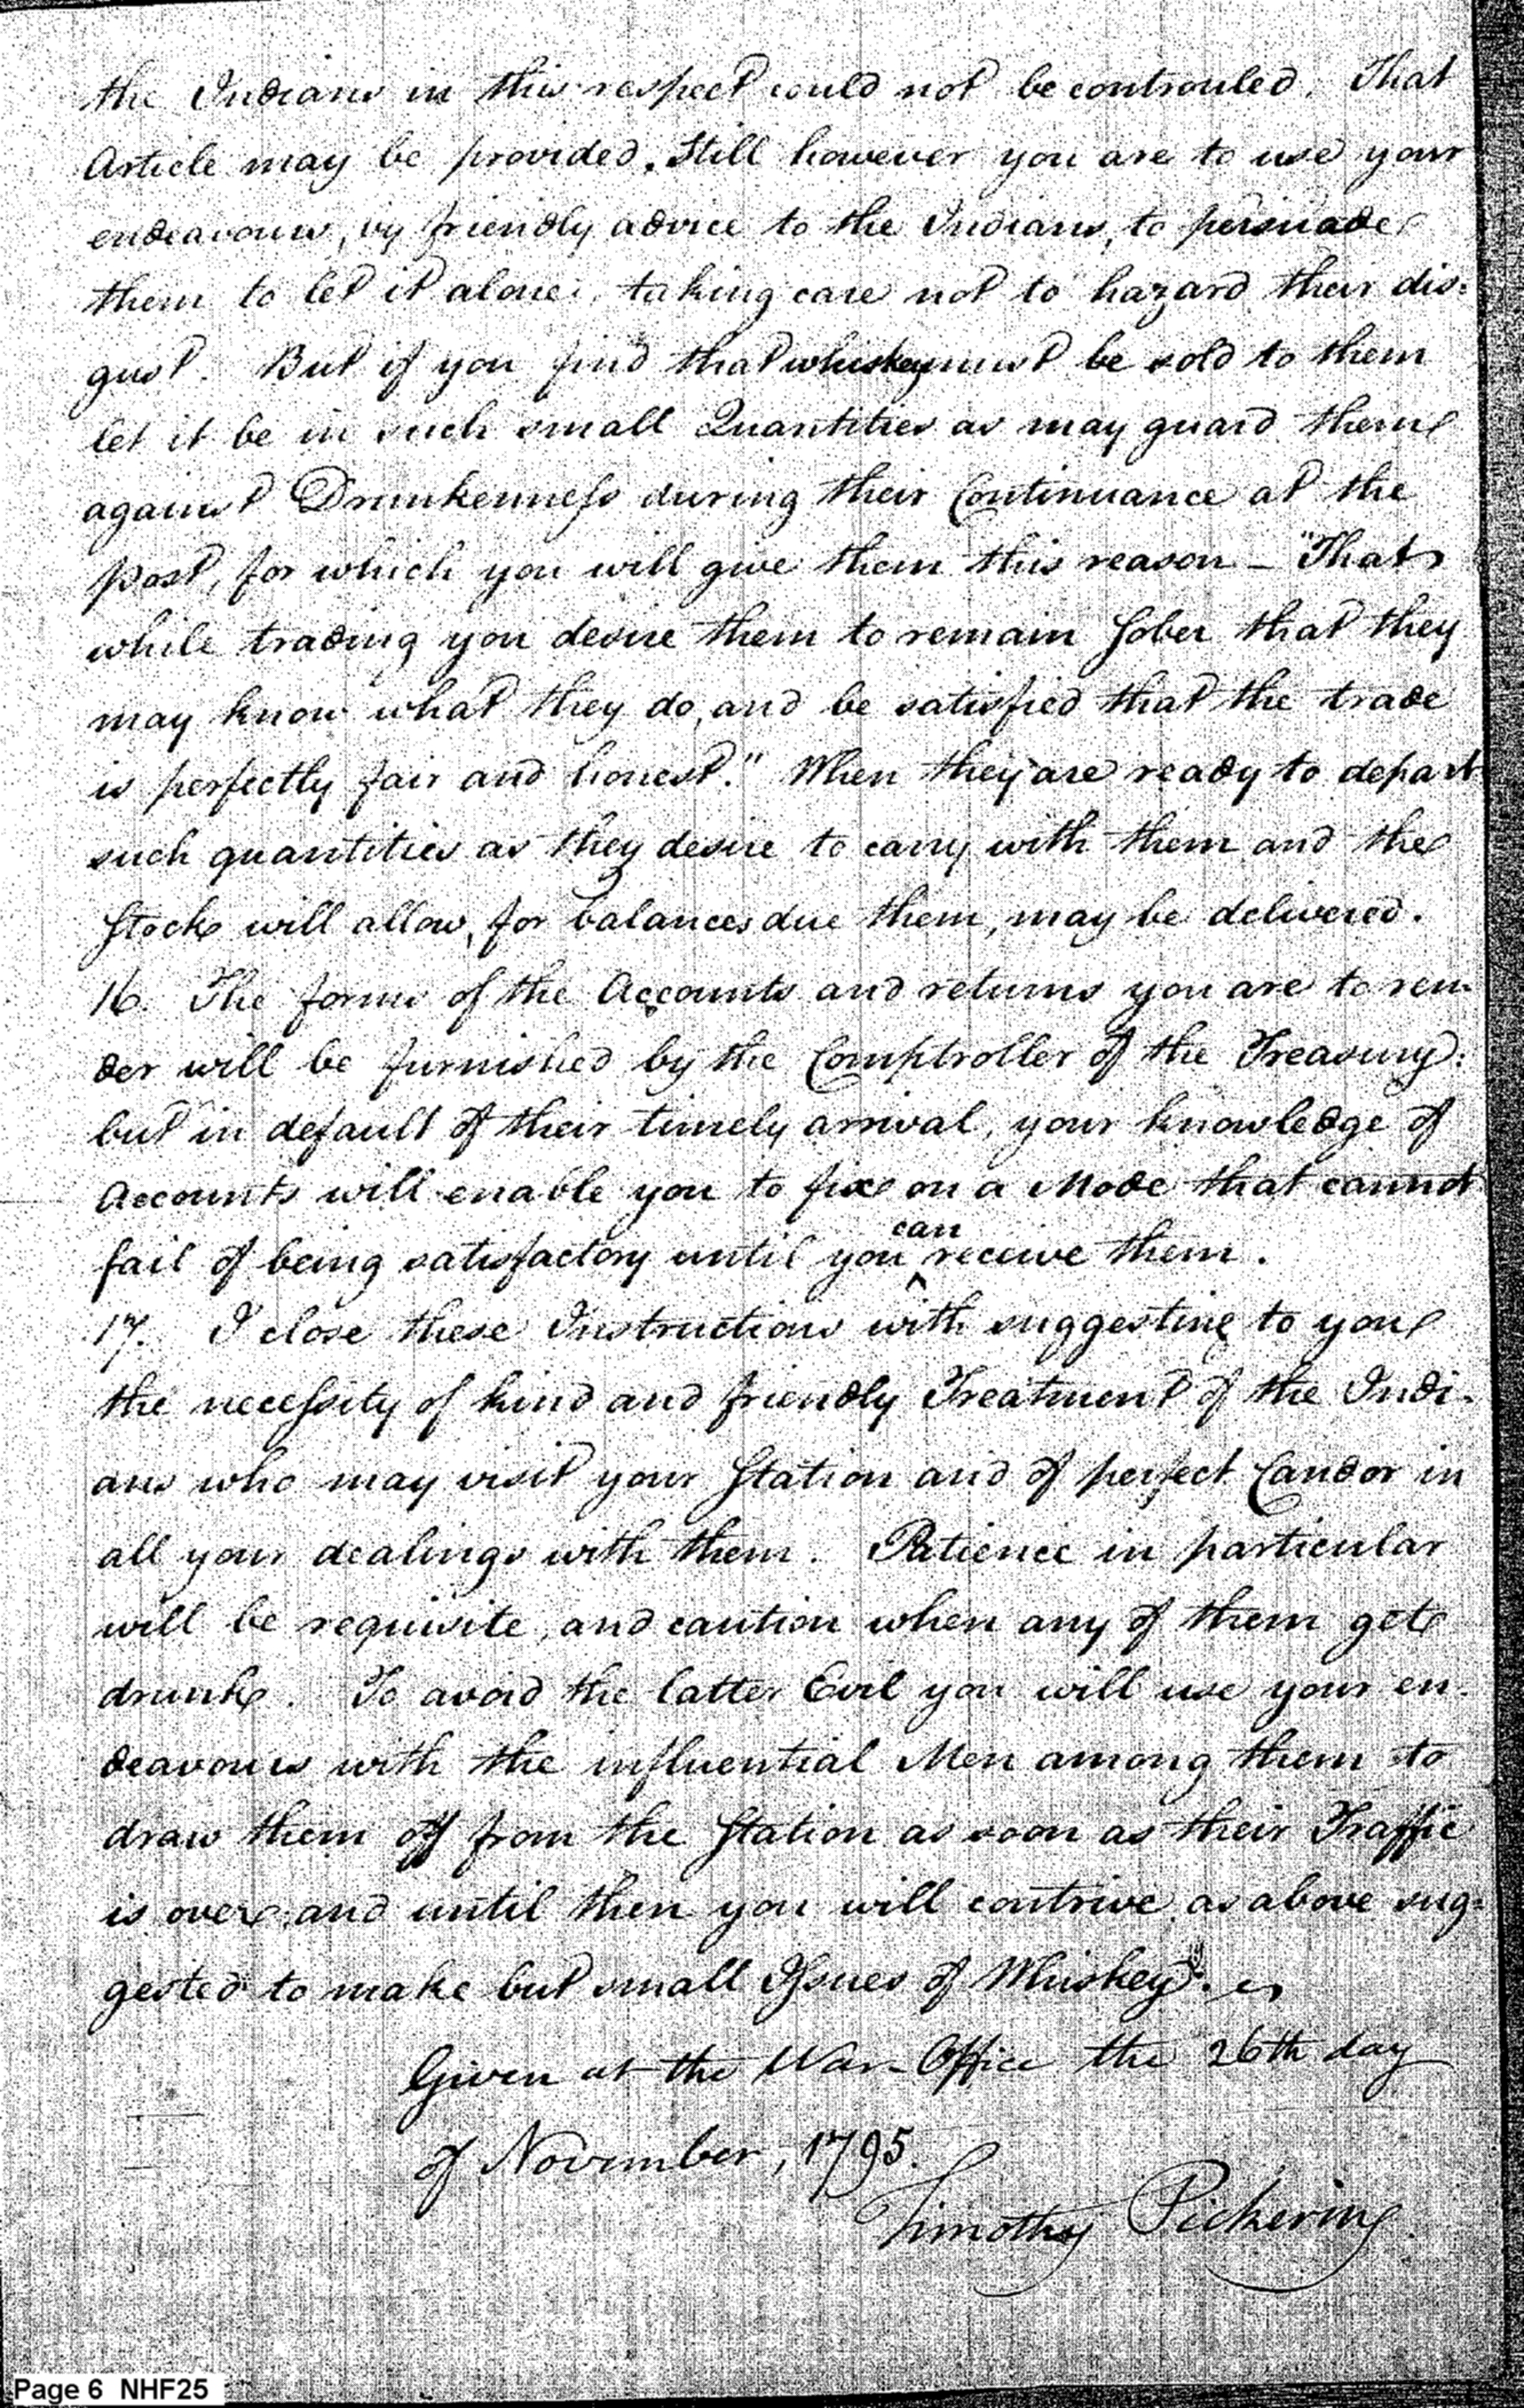 the Indians in this respect could not be controuled. That
Article may be provided. Still however you are to use your
endeavours, by friendly advice to the Indians, to persuade
them to let it alone; taking care not to hazard their dis-
gust. But if you find that whiskey must be sold to them
let it be in such small Quantities as may guard them
against Drunkenness during their Continuance at the
post, for which you will give them this reason - "That
while trading you desire them to remain Sober that they
may know what they do, and be satisfied that the trade
is perfectly fair and honest." When they are ready to depart
such quantities as they desire to carry with them and the
Stock will allow, for balances due them, may be delivered.
16. The forms of the Accounts and returns you are to ren-
der will be furnished by the Comptroller of the Treasury:
but in default of their timely arrival, your knowledge of
Accounts will enable you to fix on a Mode that cannot
fail of being satisfactory until you can receive them.
17. I close these Instructions with suggesting to you
the necessity of kind and friendly Treatment of the Indi-
ans who may visit your Station and of perfect Candor in
all your dealings with them. Patience in particular
will be requisite, and caution when any of them get
drunk. To avoid the latter Evil you will use your en-
deavours with the influential Men among them to
draw them off from the Station as soon as their Traffic
is over; and until then you will contrive as above sug-
gested to make but small Issues of Whiskey.
Given at the War-Office the 26th day
of November, 1795.
Timothy Pickering
Page 6 NHF25